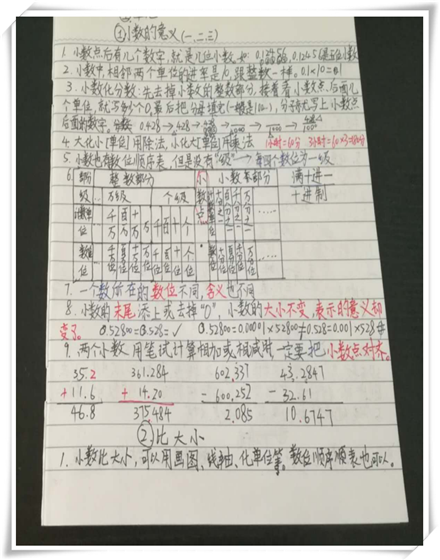 ①小数的意义(一、二、三)
1. 小数点后有几个数字,就是几位小数,如:
2. 小数中相邻两个单位的进率是10,跟整数一样。0.1×10=1
3. 小数化分数:先去掉小数的整数部分,接着看小数点后面几
个单位,就写多少个0,最后把分母填充(一横是100…),分子就写上小数点
后面的数字。例如: 0.428→
4. 大化小[单位]用除法,小化大[单位]用乘法
5. 小数也有数位顺序表,但是没有"级"→每四个数位为一级
6. 部分 整数部分 小 小数部分 满十进一
级… 万级 个级 数 十进制
单位 千万 百万 十万 万 千 百 十 个
数位
7. 一个数所在的数位不同,含义也不同
8. 小数的末尾添上或去掉"0",小数的大小不变,表示的意义却
变了。0.52800=0.528= √ 0.52800=0.00001×52800≠0.528=0.001×528
9. 两个小数用笔试计算相加或相减时一定要把小数点对齐。
35.2 361.284 602.337 43.2847
+11.6 + 14.20 - 600.252 - 32.61
46.8 375.484 2.085 10.6747
②比大小
1. 小数比大小,可以用画图、线轴、化单位等。数位顺序顺表也可以。